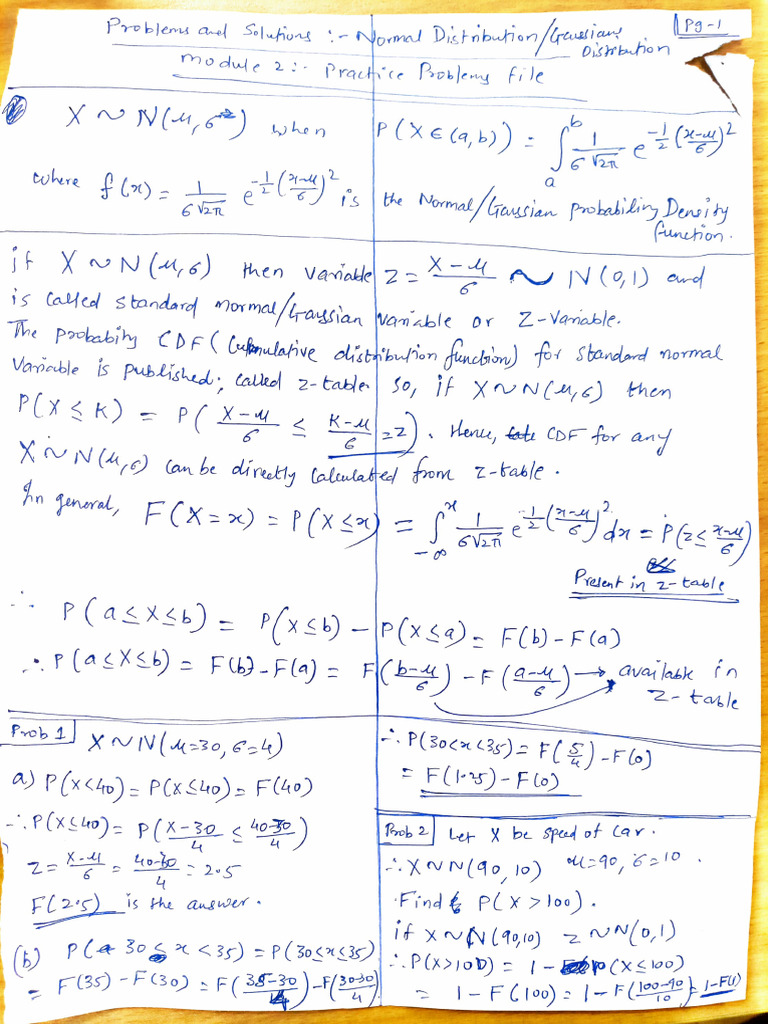 Problems and Solutions :- Normal Distribution/Gaussian Distribution
Pg-1
Module 2 :- Practice Problems file
X ~ N(μ, σ²) when P(X ∈ (a,b)) = ∫_a^b 1/(σ√2π) e^{-1/2 ((x-μ)/σ)^2}
where f(x) = 1/(σ√2π) e^{-1/2 ((x-μ)/σ)^2} is the Normal/Gaussian probability Density
function.
if X ~ N(μ, σ) then variable z = (X-μ)/σ ~ N(0,1) and
is called standard normal/Gaussian variable or Z-variable.
The probabity CDF (Cummulative distribution function) for standard normal
variable is published; called z-table. So, if X ~ N(μ, σ) then
P(X ≤ K) = P( (X-μ)/σ ≤ (K-μ)/σ = z). Hence, CDF for any
X ~ N(μ, σ) can be directly calculated from z-table.
In general, F(X = x) = P(X ≤ x) = ∫_{-∞}^x 1/(σ√2π) e^{-1/2 ((x-μ)/σ)^2} dx = P(z ≤ (x-μ)/σ)
Present in z-table
∴ P(a ≤ X ≤ b) = P(X ≤ b) - P(X ≤ a) = F(b) - F(a)
∴ P(a ≤ X ≤ b) = F(b) - F(a) = F((b-μ)/σ) - F((a-μ)/σ) → available in
Z-table
Prob 1 X ~ N(μ=30, σ=4)
a) P(X<40) = P(X≤40) = F(40)
∴ P(X≤40) = P((X-30)/4 ≤ (40-30)/4)
Z = (X-μ)/σ = (40-30)/4 = 2.5
F(2.5) is the answer.
(b) P(30 ≤ x < 35) = P(30≤x≤35)
= F(35) - F(30) = F((35-30)/4) - F((30-30)/4)
∴ P(30<x<35) = F(5/4) - F(0)
= F(1.25) - F(0)
Prob 2 Let X be speed of car.
∴ X ~ N(90, 10) μ=90, σ=10.
Find P(X > 100).
if X ~ N(90,10) z ~ N(0,1)
∴ P(X>100) = 1 - (X ≤ 100)
= 1 - F(100) = 1 - F((100-90)/10) = 1-F(1)